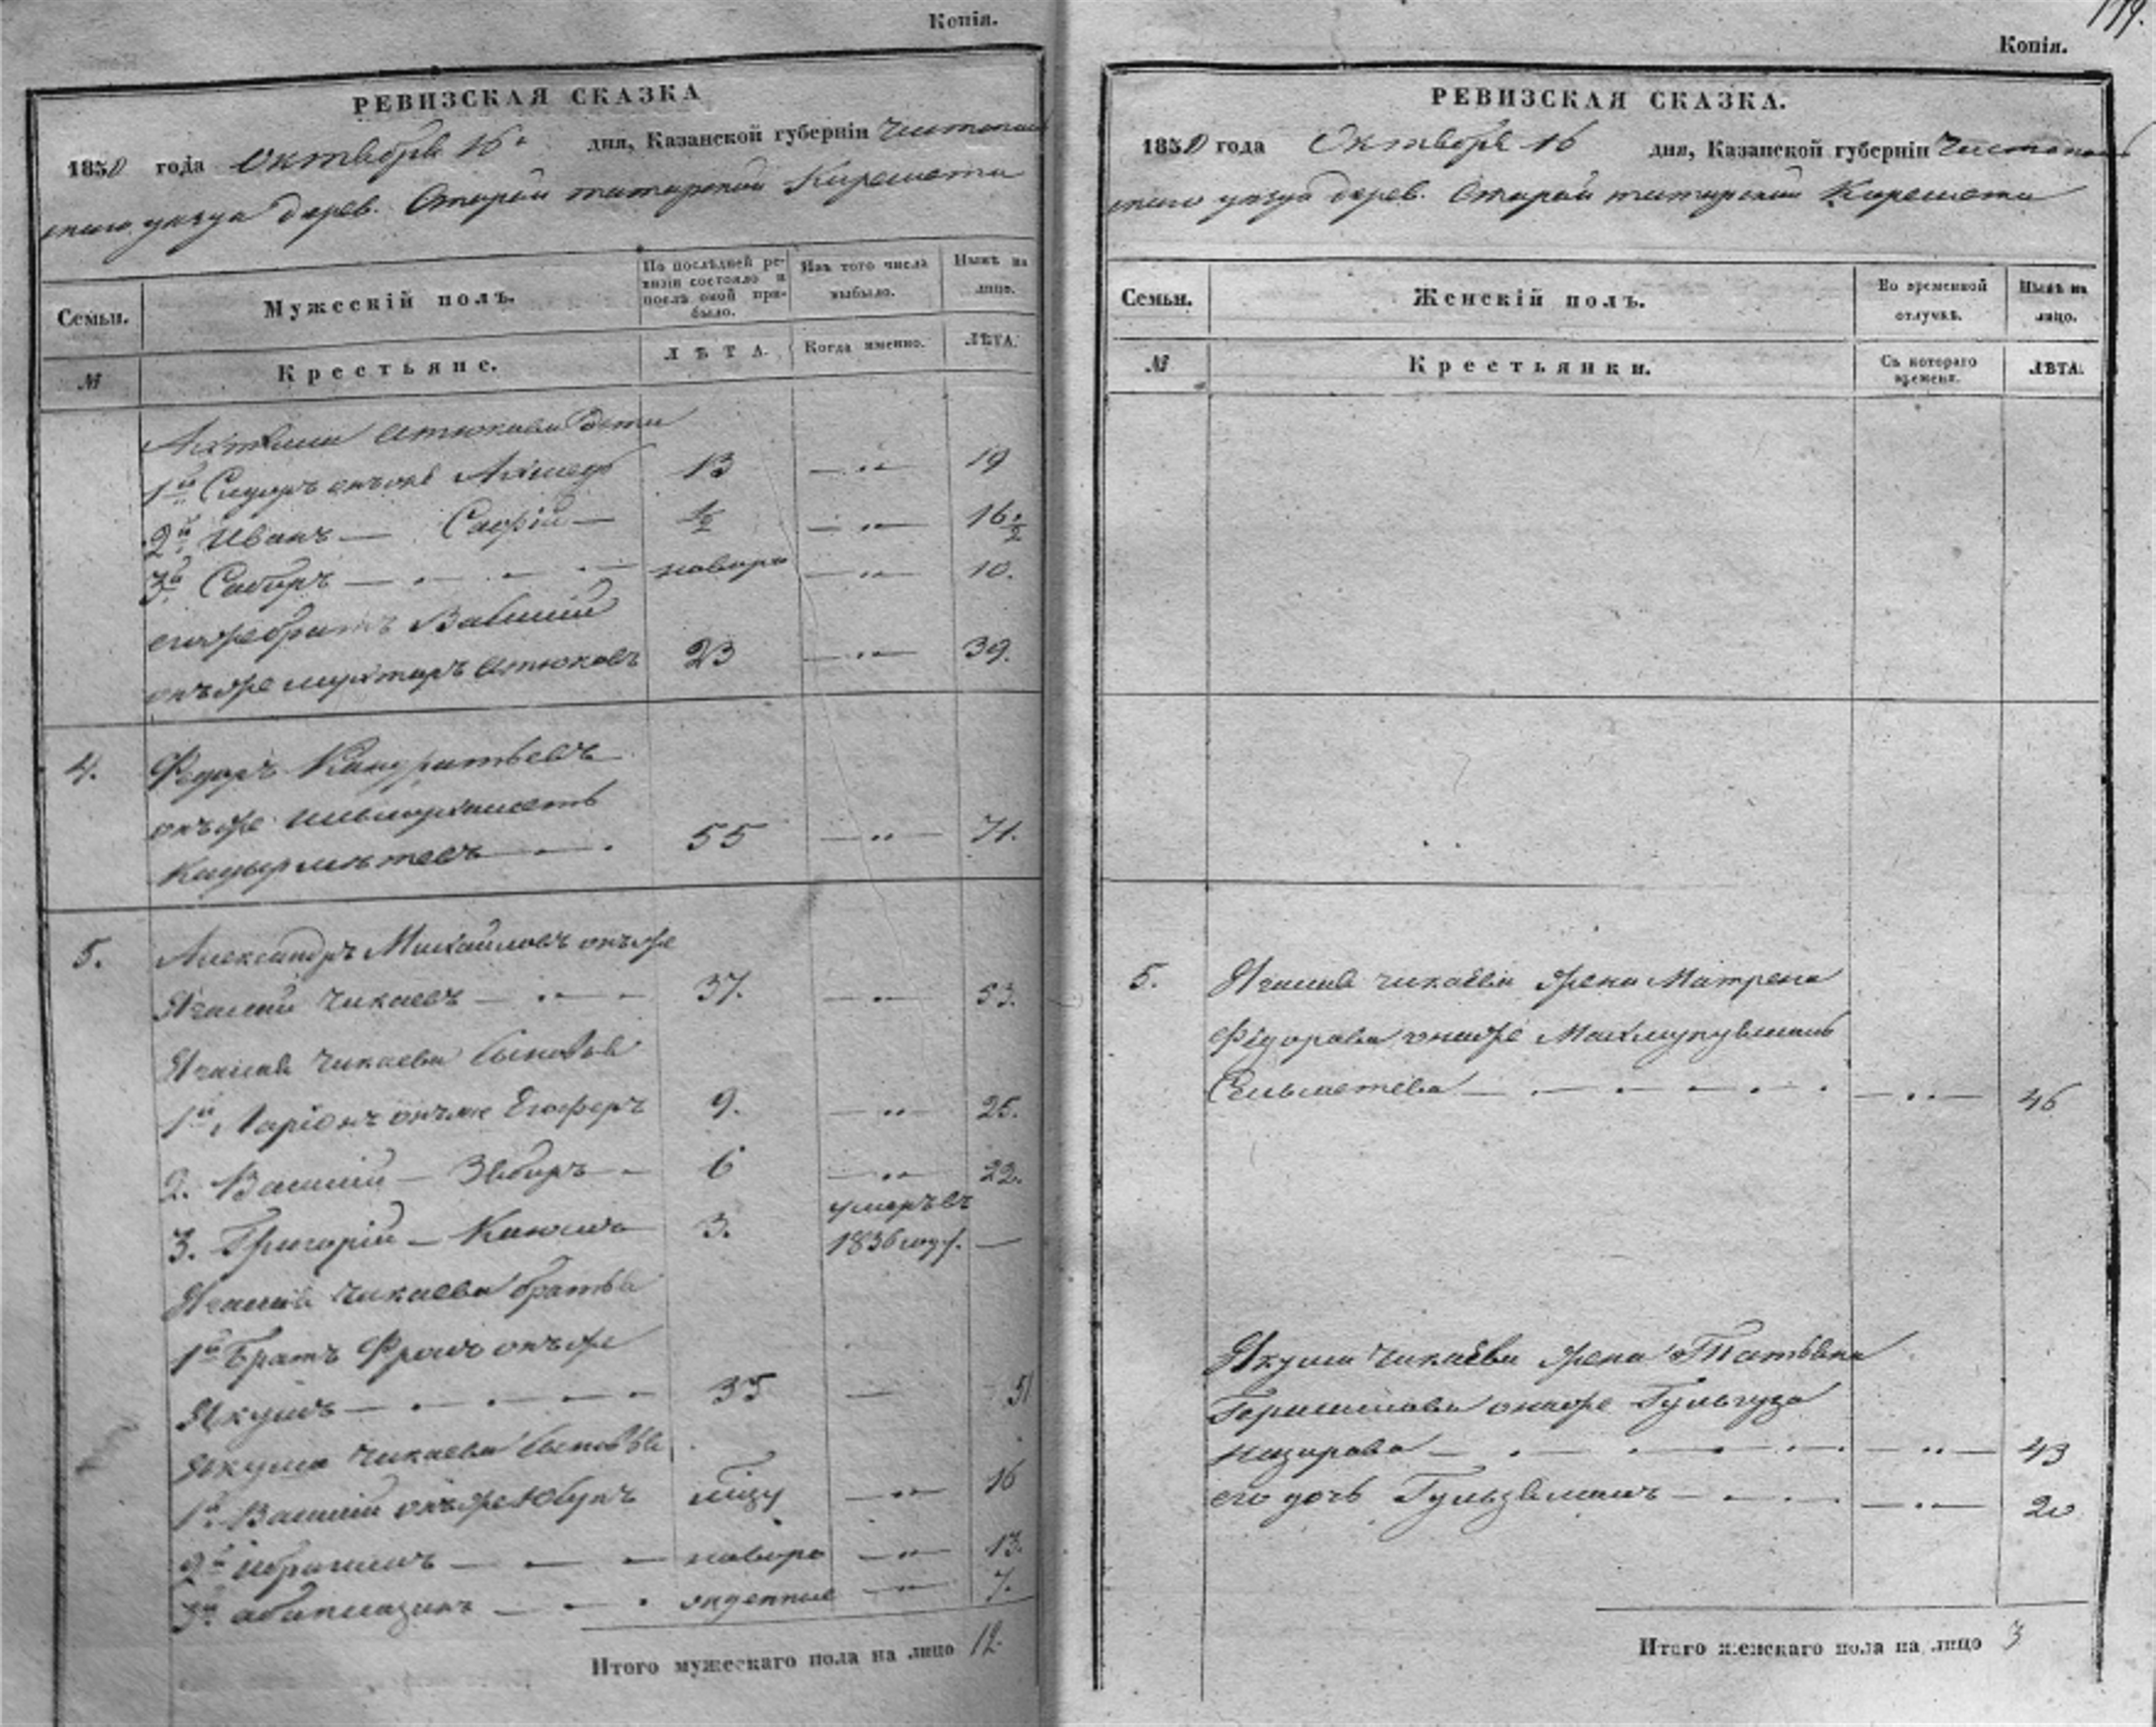 Копія.
РЕВИЗСКАЯ СКАЗКА
1850 года Октября 16 дня, Казанской губерніи Чистополь
скаго уезда дерев. Старой татарской Киремети
Семьи.
Мужескій полъ.
По послѣдней ре-
визіи состояло и
послѣ оной при-
было.
Изъ того числа
выбыло.
Нынѣ на
лицо.
№
Крестьяне.
ЛѢТА.
Когда именно.
ЛѢТА.
дети
1й Сидоръ онъже Ахмедъ 13 — „ — 19
2й Иванъ — Сафій — ½ — „ — 16 ½
3й Сабиръ — новоро — „ — 10.
егоже братъ Василій
онъже Мухтаръ Атюковъ 23 — „ — 39.
4. Федоръ Кандратьевъ
онъже
55 — „ — 71.
5. Александръ Михайловъ онъже
Ягамай Чикаевъ — 37. — „ — 53.
Ягамая Чикаева сыновья
1й Ларіонъ онъже 9. — „ — 25.
2. Василій — 6 — „ — 22.
3. Григорій — 3. умеръ въ
1836 году. —
Ягамая Чикаева братья
1й Братъ Фролъ онъже
Якушъ — 35 — 51
Якуша Чикаева сыновья
1й Василій онъже Юсупъ — „ — 16
2й Ибрагимъ — новоро — „ — 13.
3й — жденные — „ — 7.
Итого мужескаго пола на лицо 12.
Копія.
РЕВИЗСКАЯ СКАЗКА.
1850 года Октября 16 дня, Казанской губерніи Чистополь
скаго уезда дерев. Старой татарской Киремети
Семьи.
Женскій полъ.
Во временной
отлучкѣ.
Нынѣ на
лицо.
№
Крестьянки.
Съ котораго
времени.
ЛѢТА.
5. Ягамая Чикаева жена Матрена
Федорова онаже
Сельметева — „ — 46
Якуша Чикаева жена Татьяна
онаже Гульгуза
Назирова — „ — 43
его дочь — „ — 20
Итого женскаго пола на лицо 3